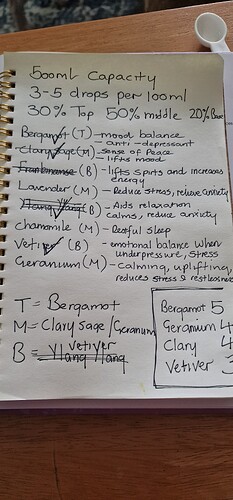 500ml Capacity
3-5 drops per 100ml
30% Top 50% middle 20% Base
Bergamot (T) - mood balance
- anti-depressant
Clary sage (M) - sense of Peace
- lifts mood
Frankincense (B) - lifts spirits and increases
energy
Lavender (M) - Reduce stress, relieve anxiety
Ylang Ylang (B) - Aids relaxation
calms, reduce anxiety
chamomile (M) - Restful sleep
Vetiver (B) - emotional balance when
underpressure, stress
Geranium (M) - calming, uplifting,
reduces stress & restlessness
T = Bergamot
M = Clary sage / Geranium
B = Vetiver
Ylang Ylang
Bergamot 5
Geranium 4
Clary 4
Vetiver 3